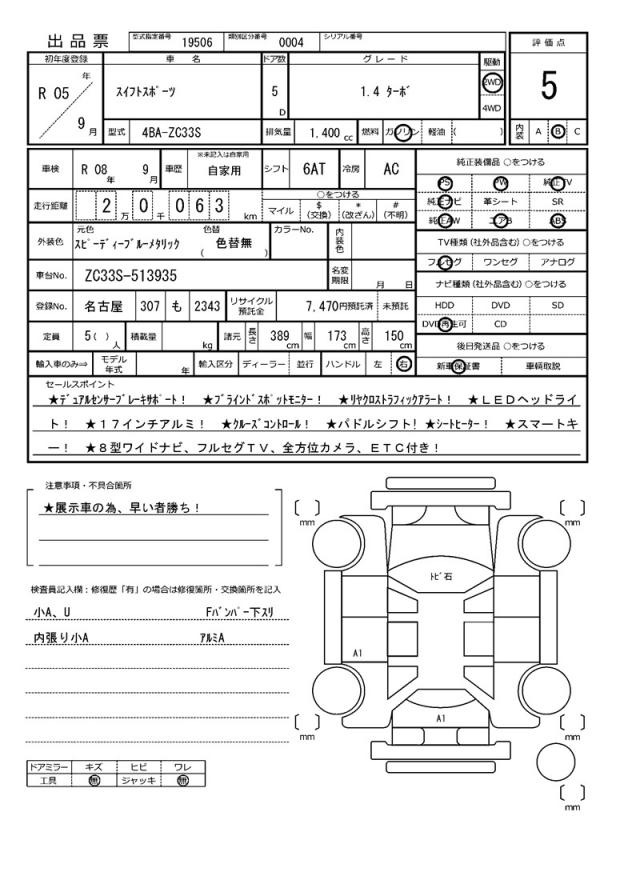 出品票 型式指定番号 19506 類別区分番号 0004 シリアル番号
評価点
初年度登録 車名 ドア数 グレード 駆動
年
R 05 スイフトスポーツ 5 1.4 ターボ 2WD 5
D 4WD
9 月 型式 4BA-ZC33S 排気量 1.400 cc 燃料 ガソリン 軽油 ( ) 内装 A B C
車検 R 08 年 9 月 車歴 ※未記入は自家用 自家用 シフト 6AT 冷房 AC
純正装備品 ○をつける
PS PW 純正TV
純正ナビ 革シート SR
純正AW エアB ABS
走行距離 2 万 0 千 0 6 3 km
○をつける
マイル $ (交換) * (改ざん) # (不明)
外装色 元色 スピーディーブルーメタリック 色替 ( 色替無 ) カラーNo. 内装色
TV種類 (社外品含む) ○をつける
フルセグ ワンセグ アナログ
車台No. ZC33S-513935 名変期限 月 日
ナビ種類 (社外品含む) ○をつける
HDD DVD SD
DVD再生可 CD
登録No. 名古屋 307 も 2343 リサイクル預託金 7,470円預託済 未預託
定員 5( ) 人 積載量 kg 諸元 長さ 389 cm 幅 173 cm 高さ 150 cm
後日発送品 ○をつける
新車保証書 車輌取説
輸入車のみ⇒ モデル年式 年 輸入区分 ディーラー 並行 ハンドル 左 右
セールスポイント
★デュアルセンサーブレーキサポート! ★ブラインドスポットモニター! ★リヤクロストラフィックアラート! ★LEDヘッドライ
ト! ★17インチアルミ! ★クルーズコントロール! ★パドルシフト! ★シートヒーター! ★スマートキ
ー! ★8型ワイドナビ、フルセグTV、全方位カメラ、ETC付き!
注意事項・不具合箇所
★展示車の為、早い者勝ち!
検査員記入欄:修復歴「有」の場合は修復箇所・交換箇所を記入
小A、U Fバンパー下スリ
内張り小A アルミA
mm
mm
トビ石
A1
A1
mm
mm
mm
ドアミラー キズ ヒビ ワレ
工具 無 ジャッキ 無